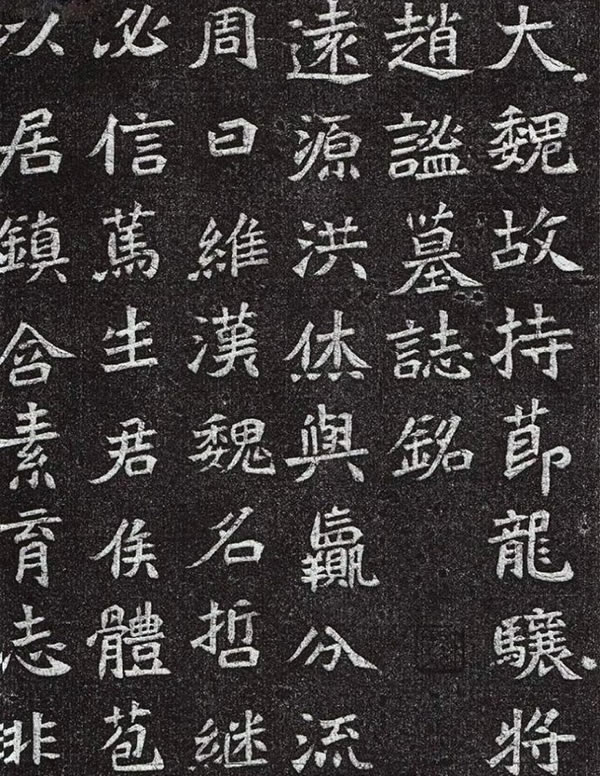 大魏故持節龍驤將
趙謐墓誌銘
遠源洪烋與贏分流
周曰維漢魏名哲継
必信篤生君侯體苞
以居鎮含素育志非